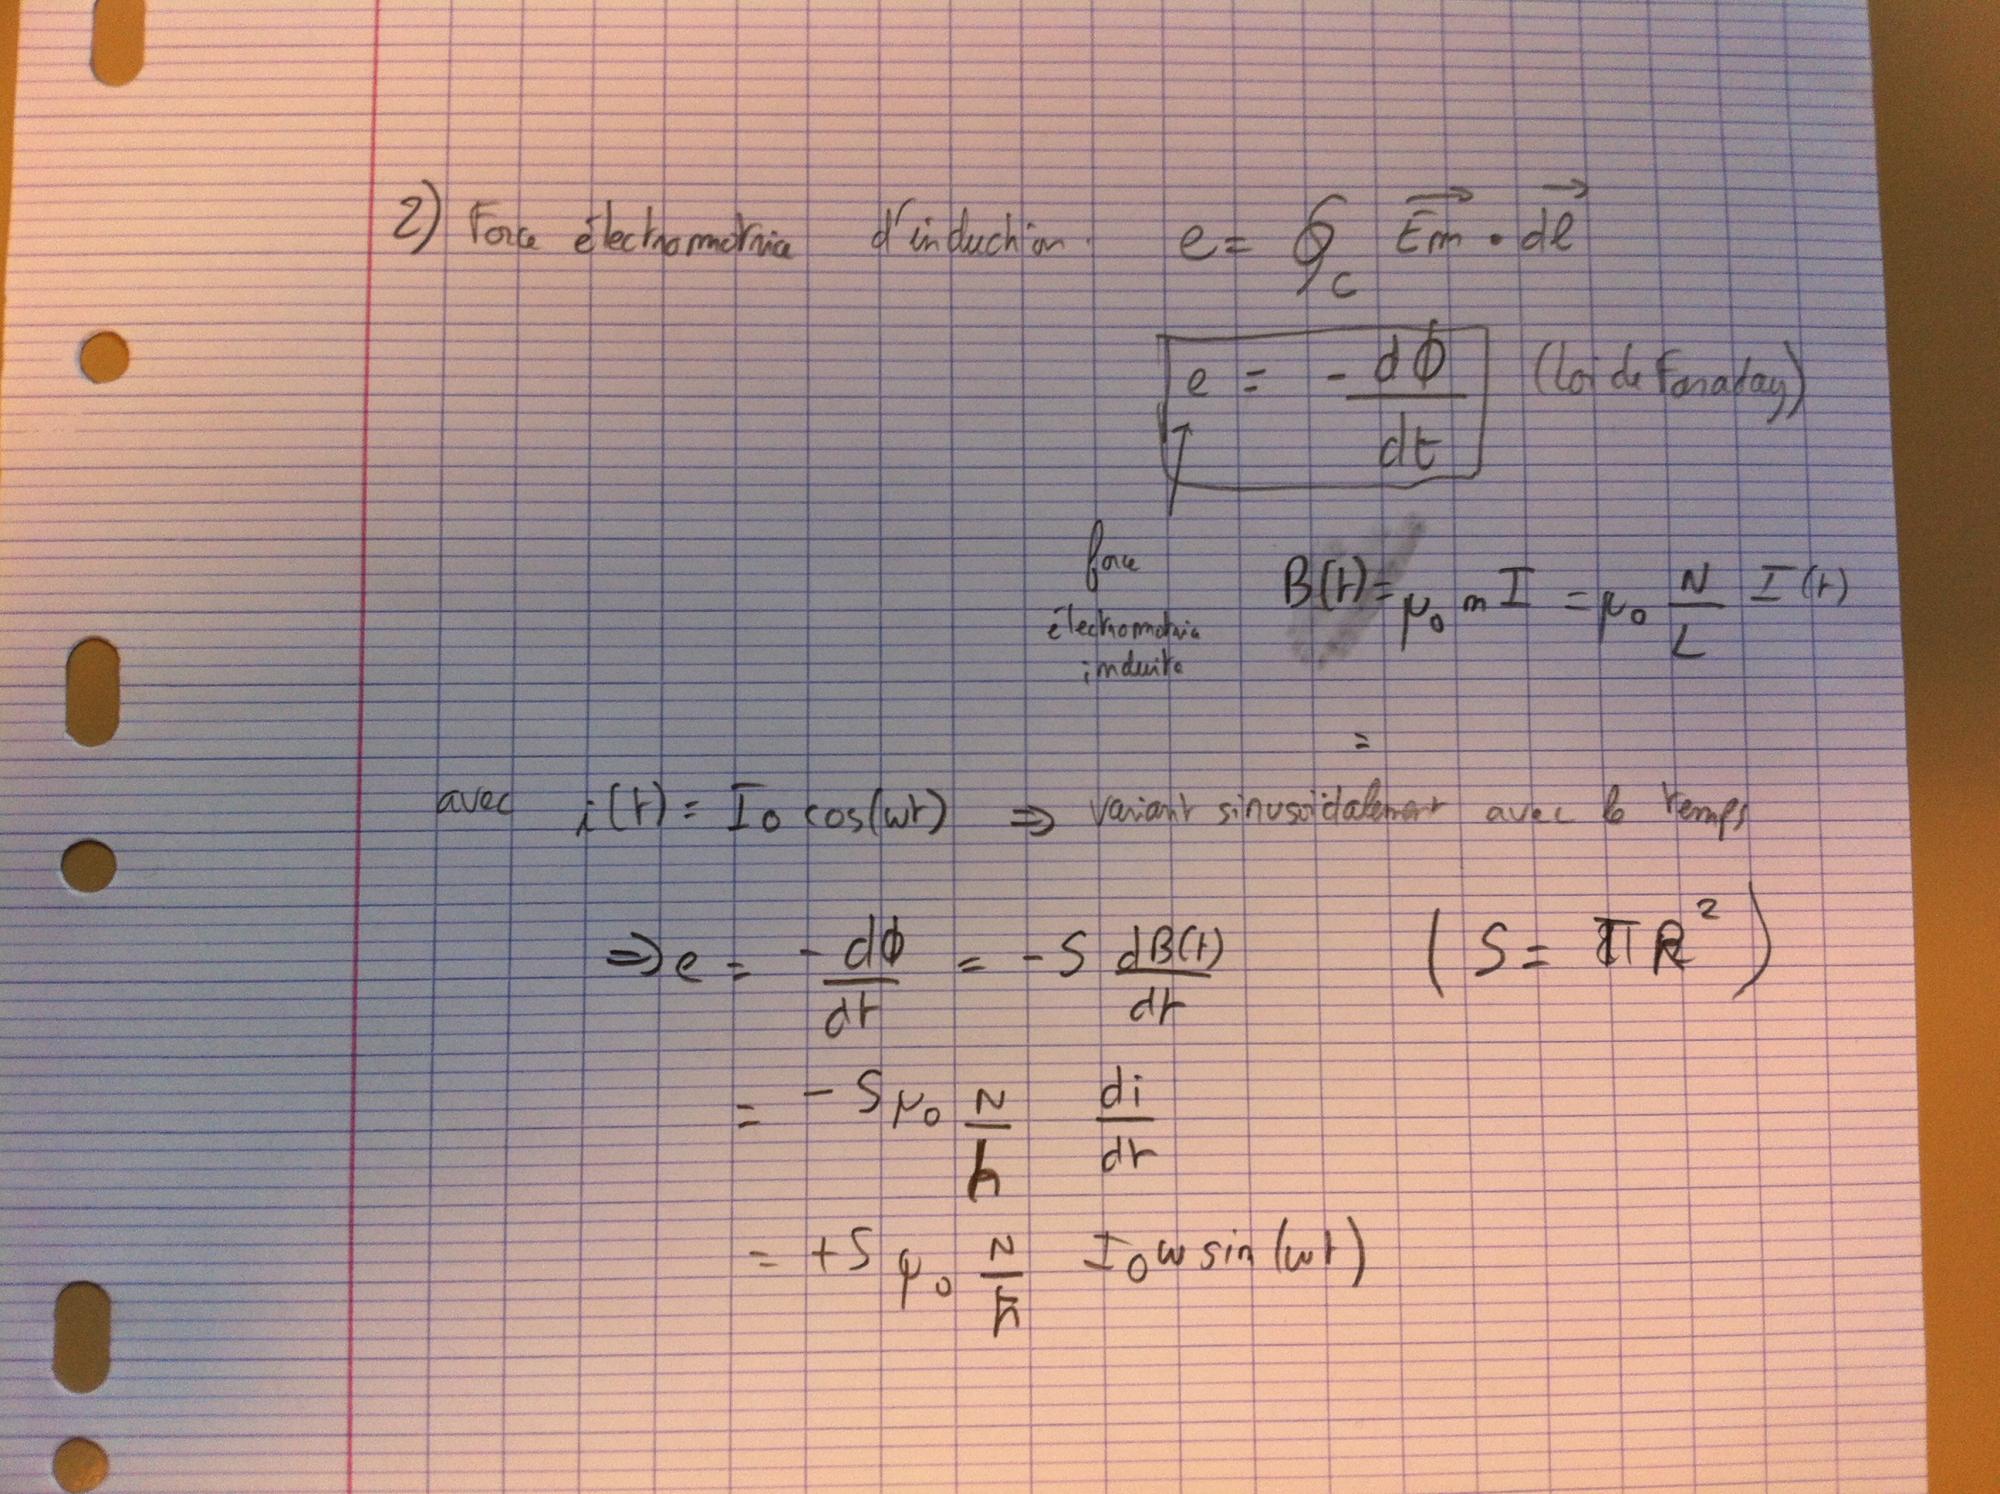 2) Force électromotrice d'induction. e = ∮_C \vec{Em} · \vec{dl}
e = - dΦ/dt (Loi de Faraday)
force
électromotrice
induite
B(t) = μ₀ n I = μ₀ N/L I(t)
=
avec i(t) = I₀ cos(ωt) ⇒ variant sinusoïdalement avec le temps
⇒ e = - dΦ/dt = - S dB(t)/dt ( S = π R² )
= - S μ₀ N/h di/dt
= + S μ₀ N/h I₀ ω sin(ωt)